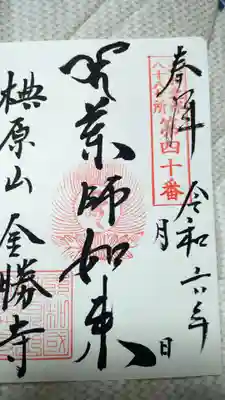 奉拝
令和六年
月 日
八十八ヶ所第四十番
薬師如来
樻原山
金勝寺